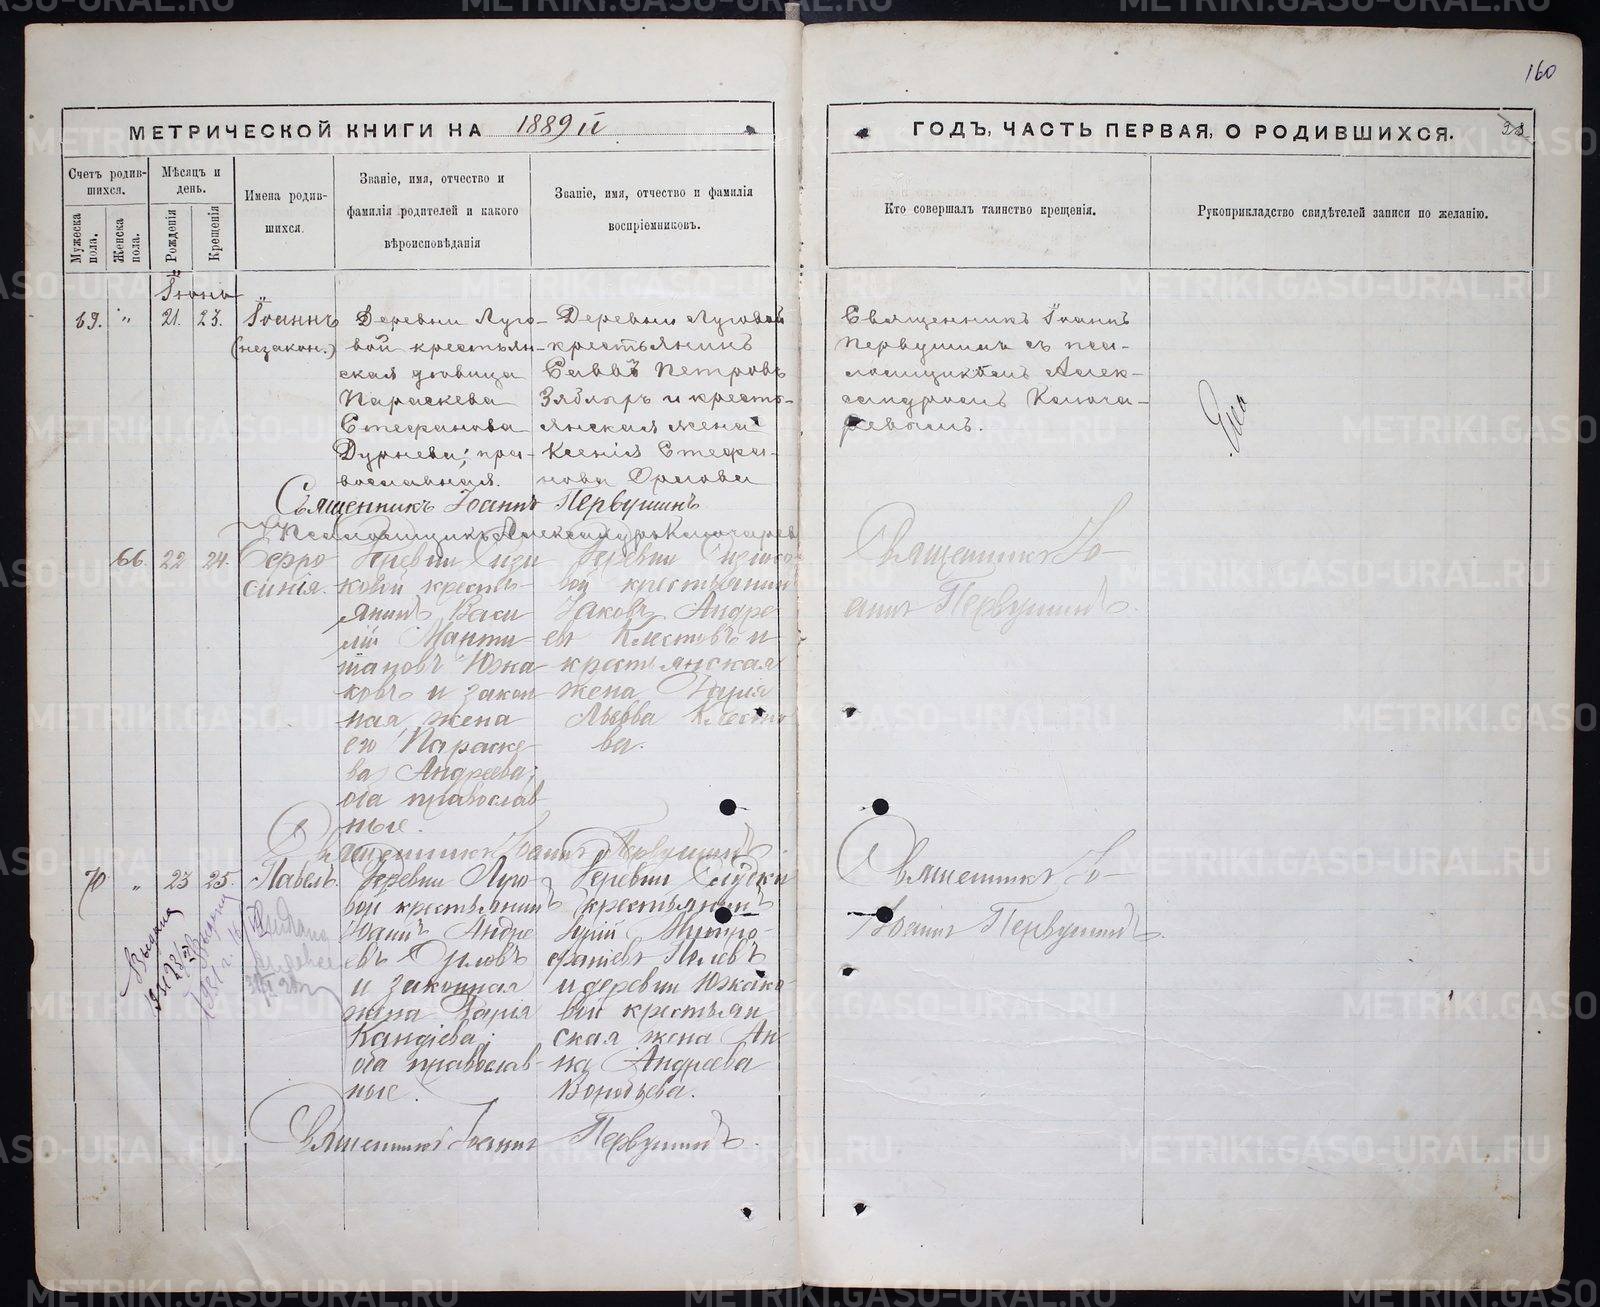 160
МЕТРИЧЕСКОЙ КНИГИ НА 1889 й
ГОДЪ, ЧАСТЬ ПЕРВАЯ, О РОДИВШИХСЯ.
Счетъ родив-
шихся.
Мужеска пола.
Женска пола.
Мѣсяцъ и день.
Рожденія
Крещенія
Имена родив-
шихся.
Званіе, имя, отчество и
фамилія родителей и какого
вѣроисповѣданія
Званіе, имя, отчество и фамилія
воспріемниковъ.
Кто совершалъ таинство крещенія.
Рукоприкладство свидѣтелей записи по желанію.
Іюнь
69. " 21. 23.
Іоаннъ
(незакон.)
Деревни Луго-
вой крестьян-
ская дѣвица
Параскева
Стефанова
Дурнева; пра-
вославная.
Деревни Луговой
крестьянинъ
Савва Петровъ
и кресть-
янская жена
Ксенія Стефа-
нова Орлова
Священникъ Іоаннъ
Первушинъ съ пса-
ломщикомъ Алек-
сандромъ Ключа-
ревымъ.
Священникъ Іоаннъ Первушинъ
Псаломщикъ Александръ Ключаревъ
66 22 24.
Евфро
синія.
Деревни
ковой кресть-
янинъ Васи
лій
Южа
ковъ и закон
ная жена
его Параске-
ва Андреева;
оба православ
ные.
Деревни
вой крестьянинъ
Іаковъ Андре
евъ Клестовъ и
крестьянская
жена Дарія
Львова Клесто
ва.
Священникъ Іо-
аннъ Первушинъ.
Священникъ Іоаннъ Первушинъ.
70 " 23 25.
Павелъ.
Деревни Луго-
вой крестьянинъ
Іоаннъ Андре
евъ Орловъ
и законная
жена Дарія
оба православ-
ные.
Деревни Слудки
крестьянинъ
Митро-
фановъ Полевъ
и деревни Южако-
вой крестьян
ская жена Ан-
на Андреева
Воробьева.
Священникъ Іо-
аннъ Первушинъ.
Священникъ Іоаннъ Первушинъ.
METRIKI.GASO-URAL.RU